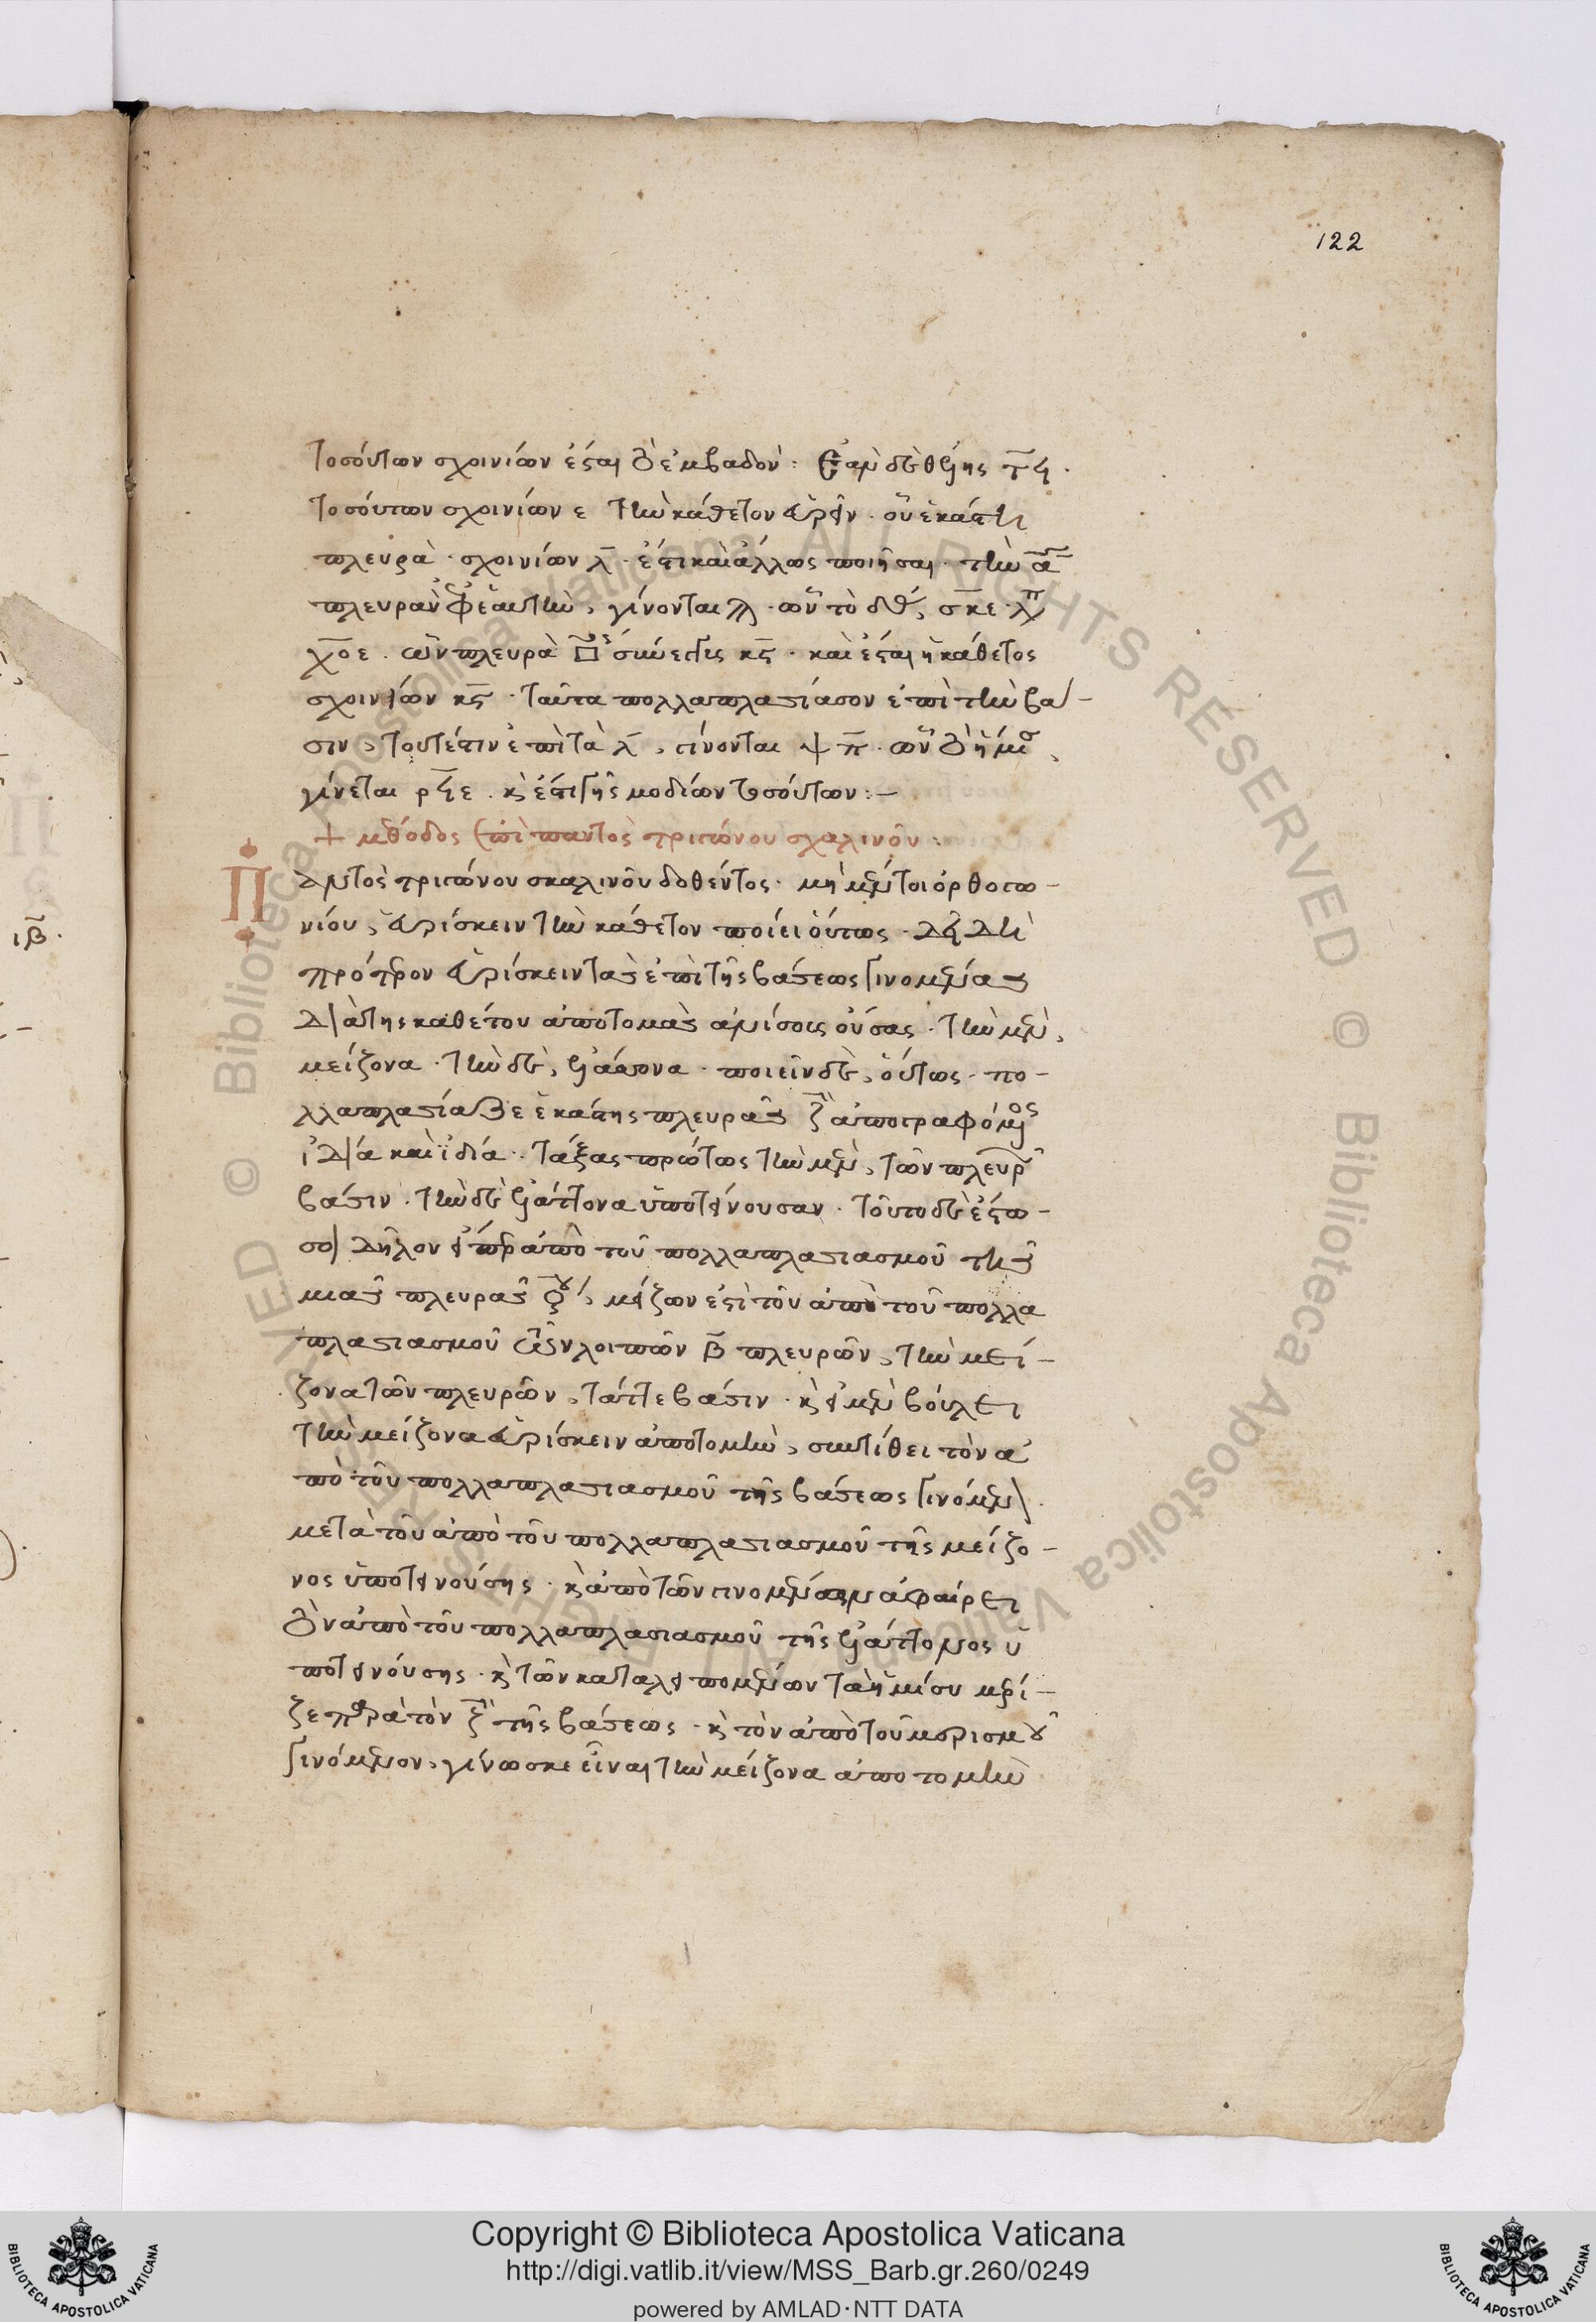 122
τοσούτων σχοινίων ἔσται τὸ ἐμβαδόν: Ἐὰν δὲ θέλης τῆς
τοσούτων σχοινίων ε τὴν κάθετον εὑρεῖν. οὗ ἑκάστη
πλευρὰ. σχοινίων λ. ἔστι καὶ ἄλλως ποιῆσαι. τὴν α
πλευρὰν ἐφ' ἑαυτὴν, γίνονται ϡ. ὧν τὸ δ', σκε. λπ
χοε. ὧν πλευρὰ □ σύνεγγις κς. καὶ ἔσται ἡ κάθετος
σχοινίων κς. ταῦτα πολλαπλασίασον ἐπὶ τὴν βά-
σιν, τουτέστιν ἐπὶ τὰ λ, γίνονται ψπ. ὧν τὸ ἥμισυ,
γίνεται ρϟε. κὶ ἔστι γῆς μοδίων τοσούτων:-
+ μέθοδος ἐπὶ παντὸς τριγώνου σκαλινοῦ:
Παντὸς τριγώνου σκαλινοῦ δοθέντος. μὴ μέντοι ὀρθογω-
νίου, εὑρίσκειν τὴν κάθετον ποίει οὕτως. δεῖ δὴ
πρότερον εὑρίσκειν τὰς ἐπὶ τῆς βάσεως γινομένας
διὰ τῆς καθέτου ἀποτομὰς ἀνίσοις οὔσας. τὴν μὲν,
μείζονα. τὴν δὲ, ἐλάττονα. ποιεῖν δὲ, οὕτως. πο-
λλαπλασίαζε ἑκάστης πλευρᾶς ἀπογραφόμενος
ἰδία καὶ ἰδία. τάξας πρώτως τὴν μὲν, τῶν πλευρῶν
βάσιν. τὴν δὲ ἐλάττονα ὑποτείνουσαν. τοῦτο δὲ ἔστω
σοι δῆλον εἴπερ ἀπὸ τοῦ πολλαπλασιασμοῦ τῆς
μιᾶς πλευρᾶς, μείζων ἐστὶ τοῦ ἀπὸ τοῦ πολλα
πλασιασμοῦ τῶν λοιπῶν β πλευρῶν, τὴν μεί-
ζονα τῶν πλευρῶν, τάττε βάσιν. κὶ εἰ μὲν βούλει
τὴν μείζονα εὑρίσκειν ἀποτομὴν, συντίθει τὸν ἀ
πὸ τοῦ πολλαπλασιασμοῦ τῆς βάσεως γινόμενον
μετὰ τοῦ ἀπὸ τοῦ πολλαπλασιασμοῦ τῆς μείζο-
νος ὑποτεινούσης. κὶ ἀπὸ τῶν γινομένων ἀφαίρει
τὸν ἀπὸ τοῦ πολλαπλασιασμοῦ τῆς ἐλάττονος ὑ
ποτεινούσης. κὶ τῶν καταλειπομένων τὰ ἡμίσυ μερί-
ζε παρὰ τὸν τῆς βάσεως. κὶ τὸν ἀπὸ τοῦ μερισμοῦ
γινόμενον, γίνωσκε εἶναι τὴν μείζονα ἀποτομὴν
ιβ.
Copyright © Biblioteca Apostolica Vaticana
http://digi.vatlib.it/view/MSS_Barb.gr.260/0249
powered by AMLAD·NTT DATA